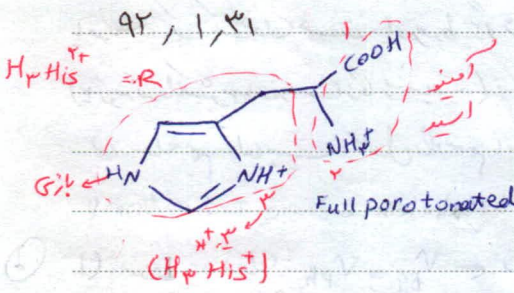 ۹۲, ۱, ۳۱
H۳His²⁺ =R
۱
COOH
آمینو
اسید
NH۳⁺
۲
HN NH+
بازی
۳
Full porotonated
H⁺, ۳
(H۳His⁺)